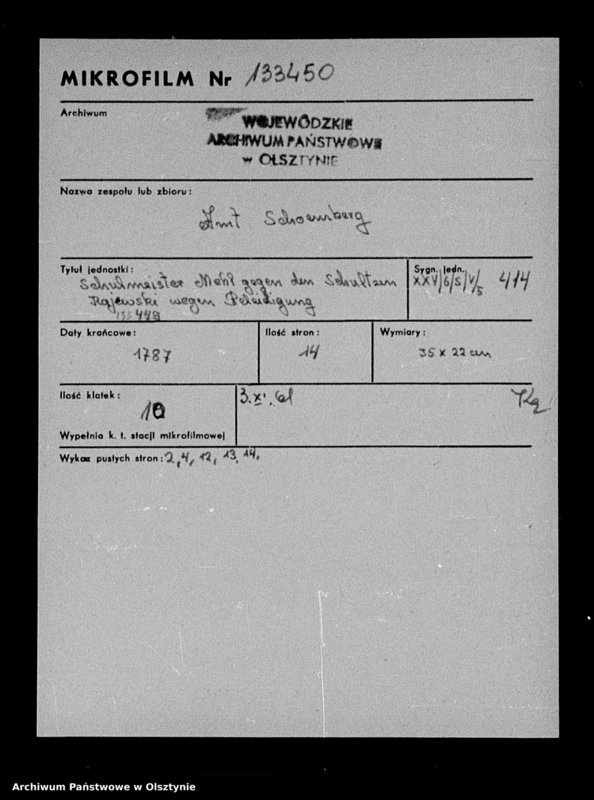 MIKROFILM Nr 133450
Archiwum
WOJEWÓDZKIE
ARCHIWUM PAŃSTWOWE
w OLSZTYNIE
Nazwa zespołu lub zbioru:
Amt Schoenberg
Tytuł jednostki:
Schulmeister gegen den Schultzen
Rajewski wegen Beleidigung
Sygn. jedn.
XXV/6/S/V/5 414
Daty krańcowe:
1787
Ilość stron:
14
Wymiary:
35 x 22 cm
Ilość klatek:
10
Wypełnia k. t. stacji mikrofilmowej
3.XI.61
Wykaz pustych stron: 2, 4, 12, 13, 14.
Archiwum Państwowe w Olsztynie